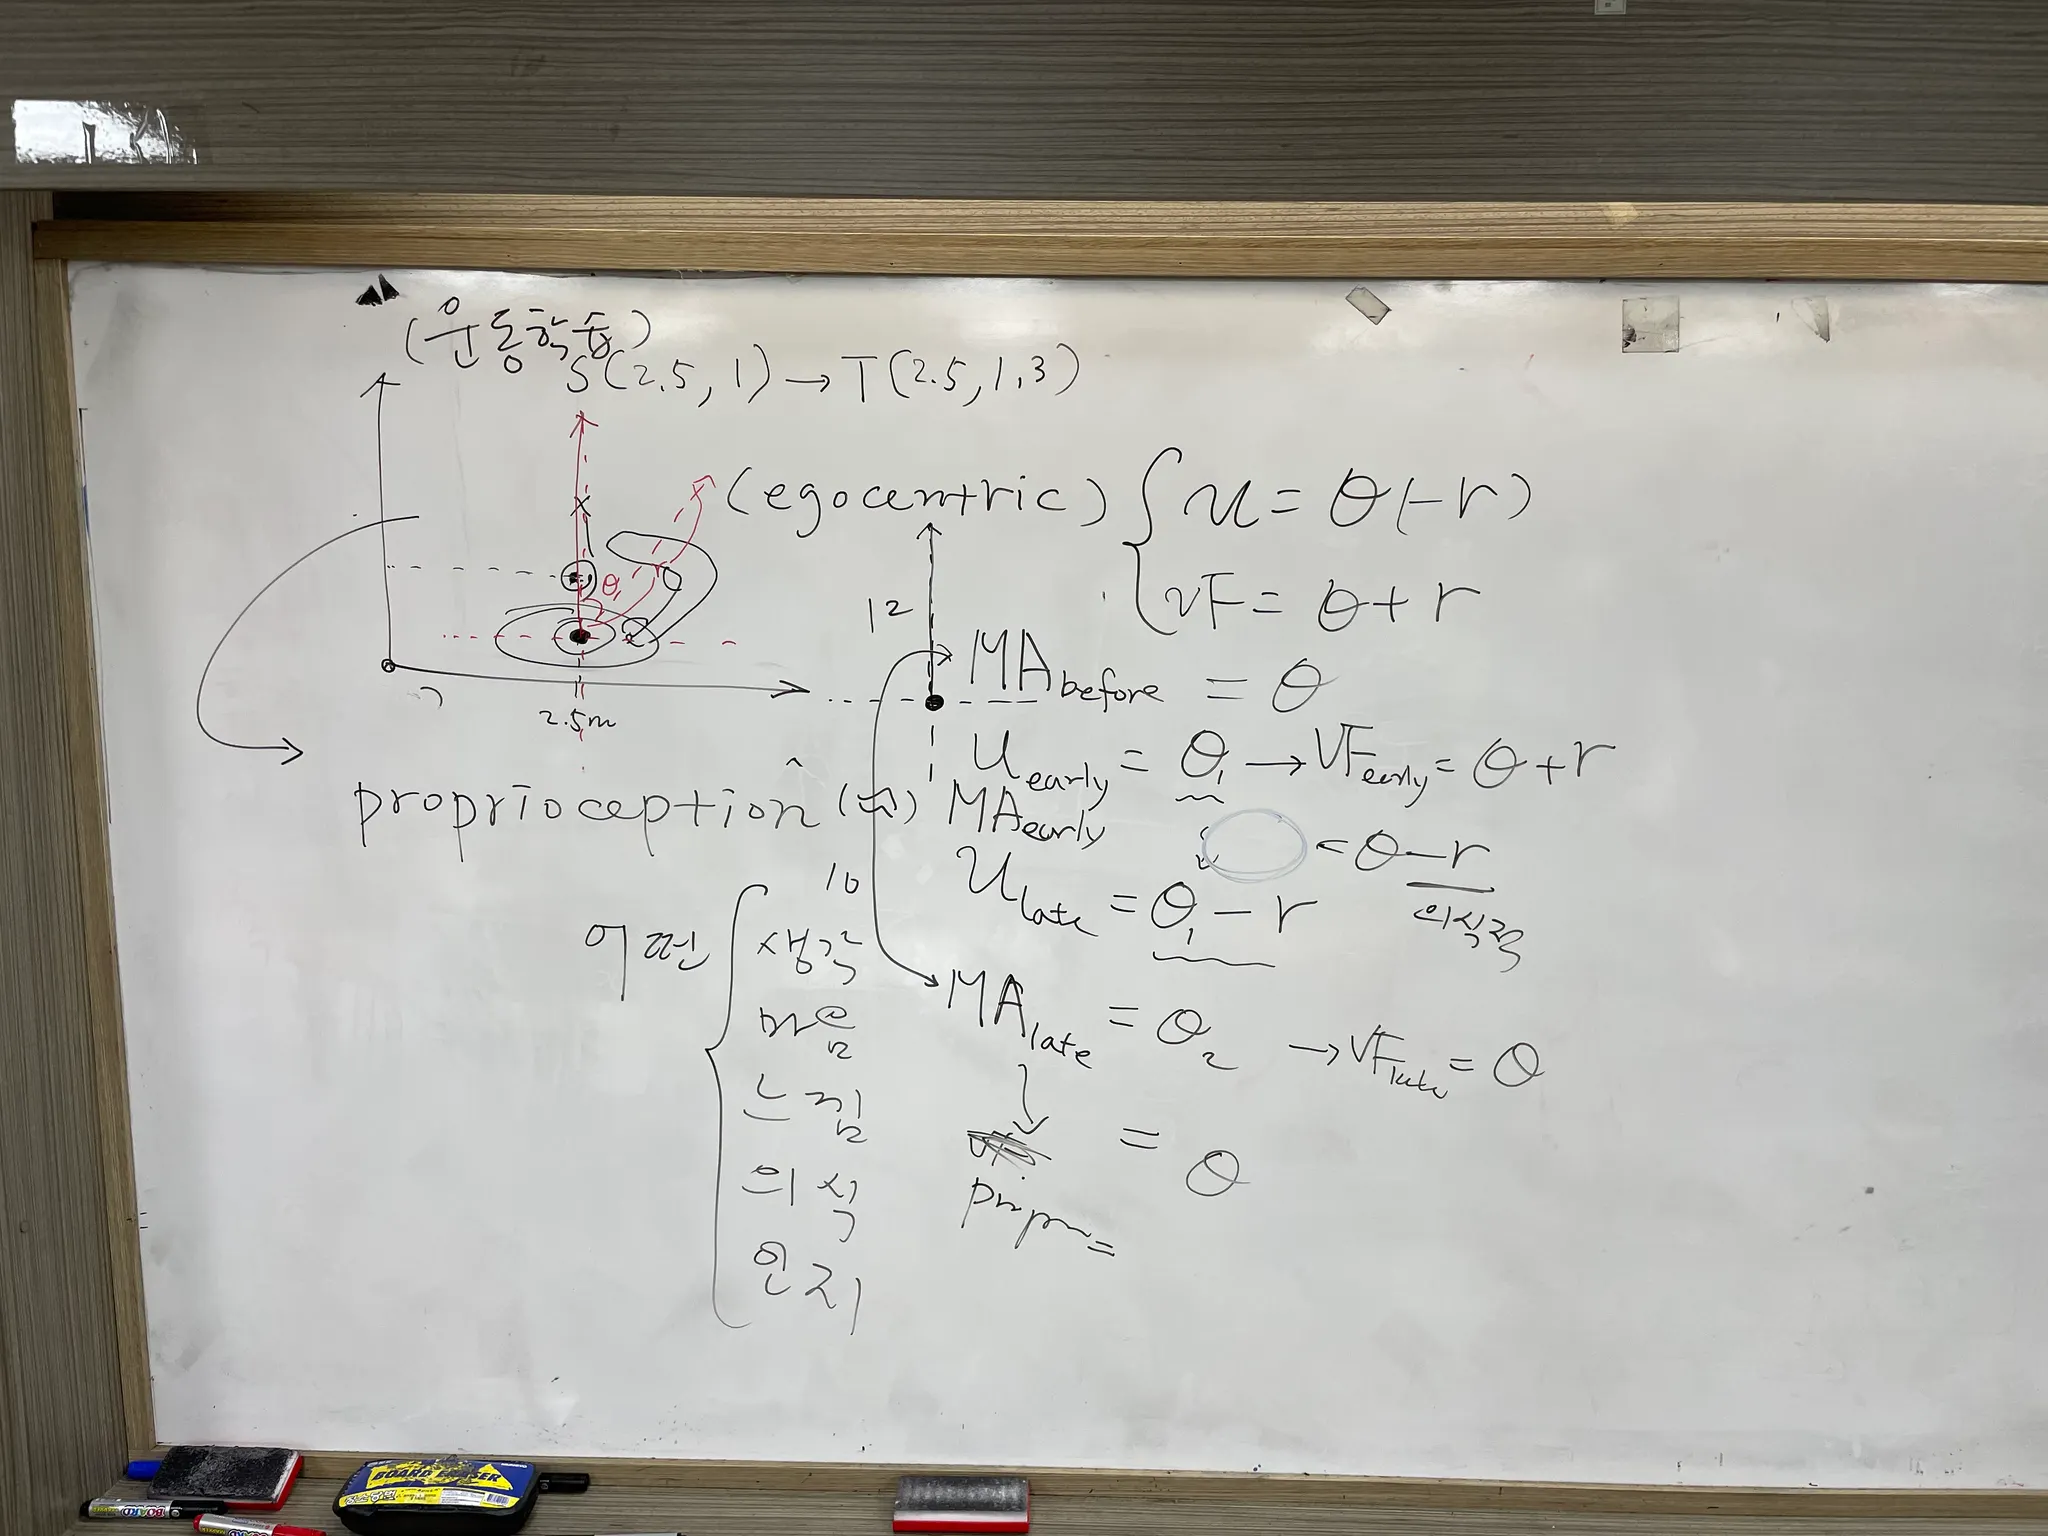 (운동학습)
S(2.5, 1) → T(2.5, 1.3)
(egocentric)
u = θ(-r)
VF = θ + r
θ₁
12
2.5m
MA before = θ
u early = θ₁ → VF early = θ + r
proprioception
MA early = θ - r
의식적
u late = θ₁ - r
10
어떤
생각
마음
느낌
의식
인지
MA late = θ₂ → VF late = θ
= θ
BOARD ERASER
BOARD